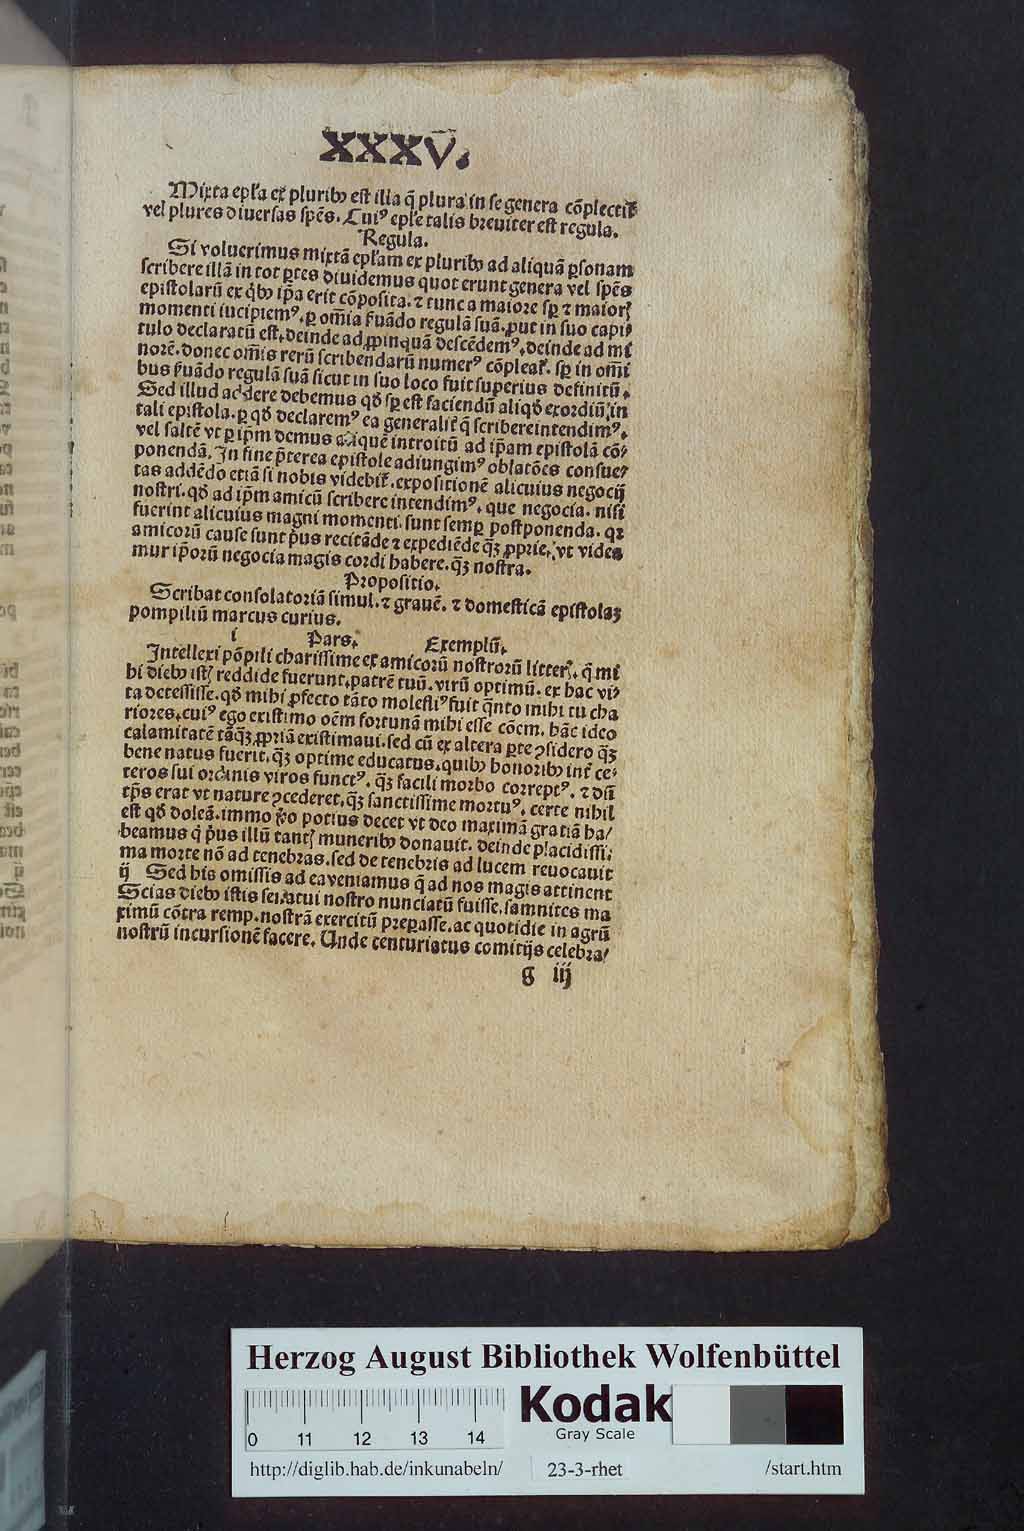 XXXV.
Mixta epl'a ex pluribꝰ est illa q̄ plura in se genera cōplectit᷑
vel plures diuersas spēs. Cuiꝰ epl'e talis breuiter est regula.
Regula.
Si voluerimus mixtā epl'am ex pluribꝰ ad aliquā ꝑsonam
scribere illā in tot ꝑtes diuidemus quot erunt genera vel spēs
epistolarū ex q̇bꝰ ip̄a erit cōposita. ⁊ tunc a maiore sꝑ ⁊ maiorꝭ
momenti incipiemꝰ. ꝑ om̄ia ẜuādo regulā suā. ꝓut in suo capi⸗
tulo declaratū est. deinde ad ꝓpinquā descēdemꝰ. deinde ad mi
norē. donec om̄is rerū scribendarū numerꝰ cōpleat᷑. sꝑ in om̄i
bus ẜuādo regulā suā sicut in suo loco fuit superius definitū.
Sed illud addere debemus qđ sꝑ est faciendū aliqđ exordiū in
tali epistola. ꝑ qđ declaremꝰ ea generalit᷑ q̄ scribere intendimꝰ.
vel saltē vt ꝑ ip̄m demus aliquē introitū ad ip̄am epistolā cō⸗
ponendā. In fine p̄terea epistole adiungimꝰ oblatōes consue⸗
tas addēdo etiā si nobis videbit᷑. expositionē alicuius negocij
nostri. qđ ad ip̄m amicū scribere intendimꝰ. que negocia. nisi
fuerint alicuius magni momenti. sunt semꝑ postponenda. qꝛ
amicorū cause sunt p̄us recitāde ⁊ expediēde q̄ꝫ ꝓprie. vt vide⸗
mur ip̄orū negocia magis cordi habere. q̄ꝫ nostra.
Propositio.
Scribat consolatoriā simul. ⁊ grauē. ⁊ domesticā epistolaꝫ
pompiliū marcus curius.
i Pars. Exemplū.
Intellexi pōpili charissime ex amicorū nostrorū litterꝭ. q̄ mi
hi diebꝰ istꝭ reddide fuerunt. patrē tuū. virū optimū. ex hac vi⸗
ta decessisse. qđ mihi ꝓfecto tāto molestiꝰ fuit q̄nto mihi tu cha
riores. cuiꝰ ego existimo oēm fortunā mihi esse cōem. hāc ideo
calamitatē tāq̄ꝫ ꝓpriā existimaui. sed cū ex altera ꝑte ꝯsidero q̄ꝫ
bene natus fuerit. q̄ꝫ optime educatus. quibꝰ honoribꝰ int᷑ ce⸗
teros sui ordinis viros functꝰ. q̄ꝫ facili morbo correptꝰ. ⁊ dū
tp̄s erat vt nature ꝯcederet. q̄ꝫ sanctissime mortuꝰ. certe nihil
est qđ doleā. immo v̊o potius decet vt deo maximā gratiā ha⸗
beamus q̇ p̄us illū tantꝭ muneribꝰ donauit. deinde placidissi⸗
ma morte nō ad tenebras. sed de tenebris ad lucem reuocauit
ij Sed his omissis ad ea veniamus q̄ ad nos magis attinent
Scias diebꝰ istis senatui nostro nunciatū fuisse. samnites ma
ximū cōtra remp. nostrā exercitū preꝑasse. ac quotidie in agrū
nostrū incursionē facere. Unde centuriatus comitijs celebra⸗
g iij
Herzog August Bibliothek Wolfenbüttel
0 11 12 13 14
Kodak
Gray Scale
http://diglib.hab.de/inkunabeln/ 23-3-rhet /start.htm